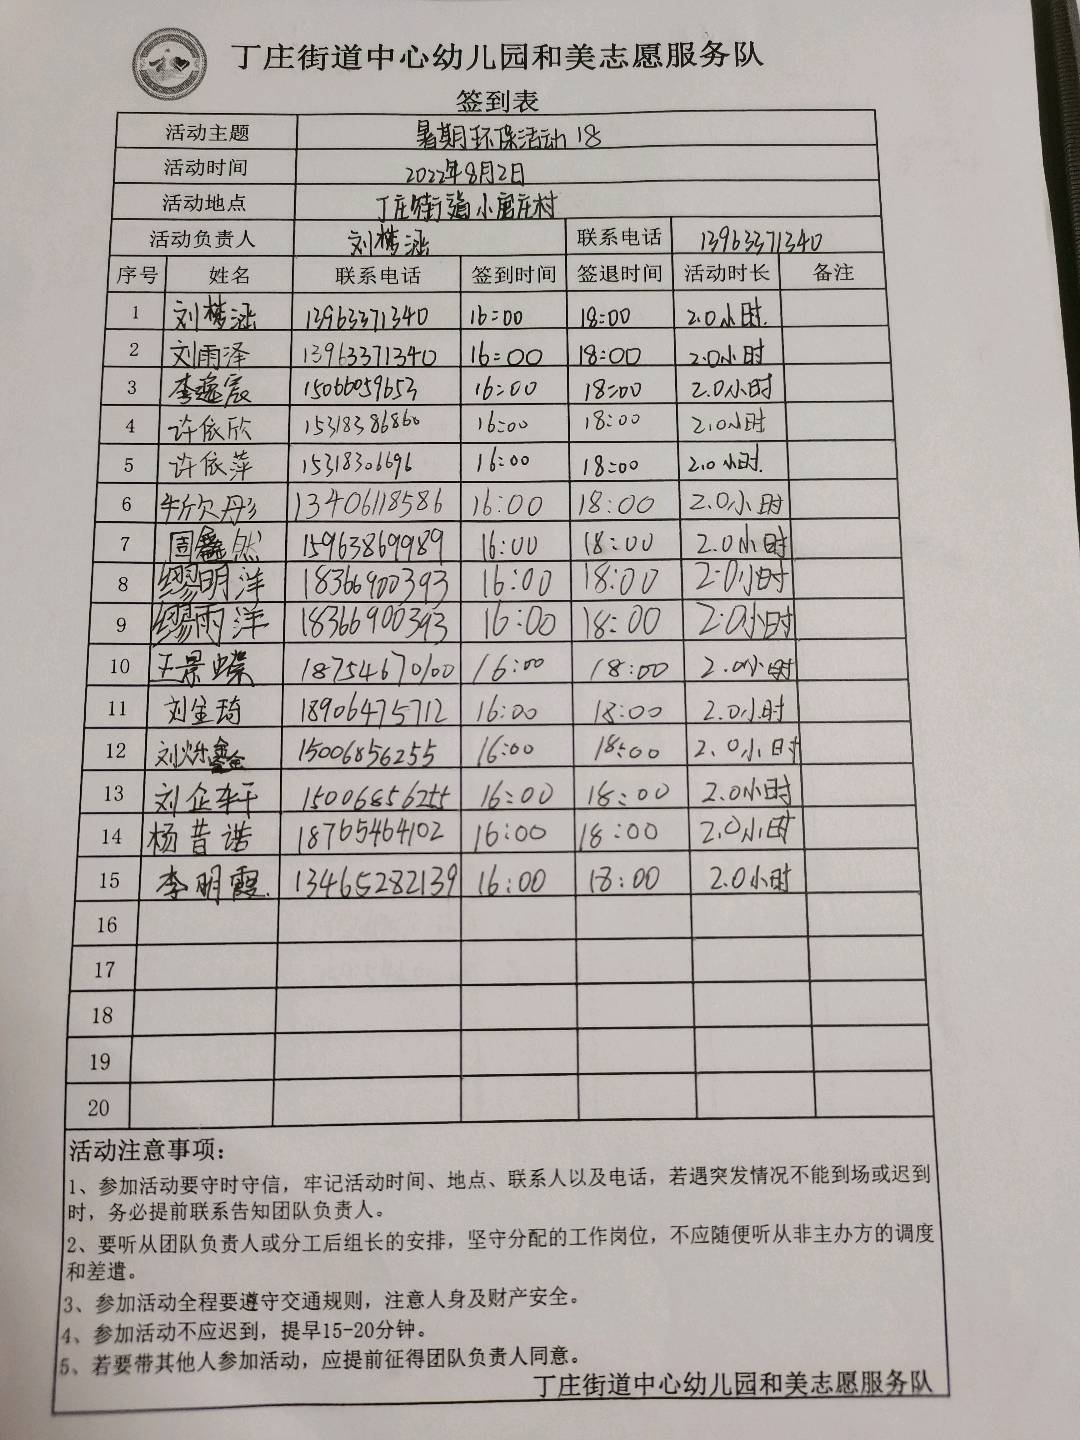 丁庄街道中心幼儿园和美志愿服务队
签到表
活动主题 暑期环保活动18
活动时间 2022年8月2日
活动地点 丁庄街道小屋庄村
活动负责人 刘梦涵 联系电话 13963371340
序号 姓名 联系电话 签到时间 签退时间 活动时长 备注
1 刘梦涵 13963371340 16:00 18:00 2.0小时.
2 刘雨泽 13963371340 16:00 18:00 2.0小时
3 李逸宸 15066059653 16:00 18:00 2.0小时
4 许依欣 15318386860 16:00 18:00 2.0小时
5 许依萍 15318306696 16:00 18:00 2.0小时.
6 牛欣彤 13406118586 16:00 18:00 2.0小时
7 周鑫然 15963869989 16:00 18:00 2.0小时
8 缪明洋 18366900393 16:00 18:00 2.0小时
9 缪雨洋 18366900393 16:00 18:00 2.0小时
10 王景蝶 18754670100 16:00 18:00 2.0小时
11 刘金琦 18906475712 16:00 18:00 2.0小时
12 刘烁鑫 15006856255 16:00 18:00 2.0小时
13 刘企 15006856255 16:00 18:00 2.0小时
14 杨昔诺 18765464102 16:00 18:00 2.0小时
15 李明霞. 13465282139 16:00 18:00 2.0小时
16
17
18
19
20
活动注意事项：
1、参加活动要守时守信，牢记活动时间、地点、联系人以及电话，若遇突发情况不能到场或迟到
时，务必提前联系告知团队负责人。
2、要听从团队负责人或分工后组长的安排，坚守分配的工作岗位，不应随便听从非主办方的调度
和差遣。
3、参加活动全程要遵守交通规则，注意人身及财产安全。
4、参加活动不应迟到，提早15-20分钟。
5、若要带其他人参加活动，应提前征得团队负责人同意。
丁庄街道中心幼儿园和美志愿服务队